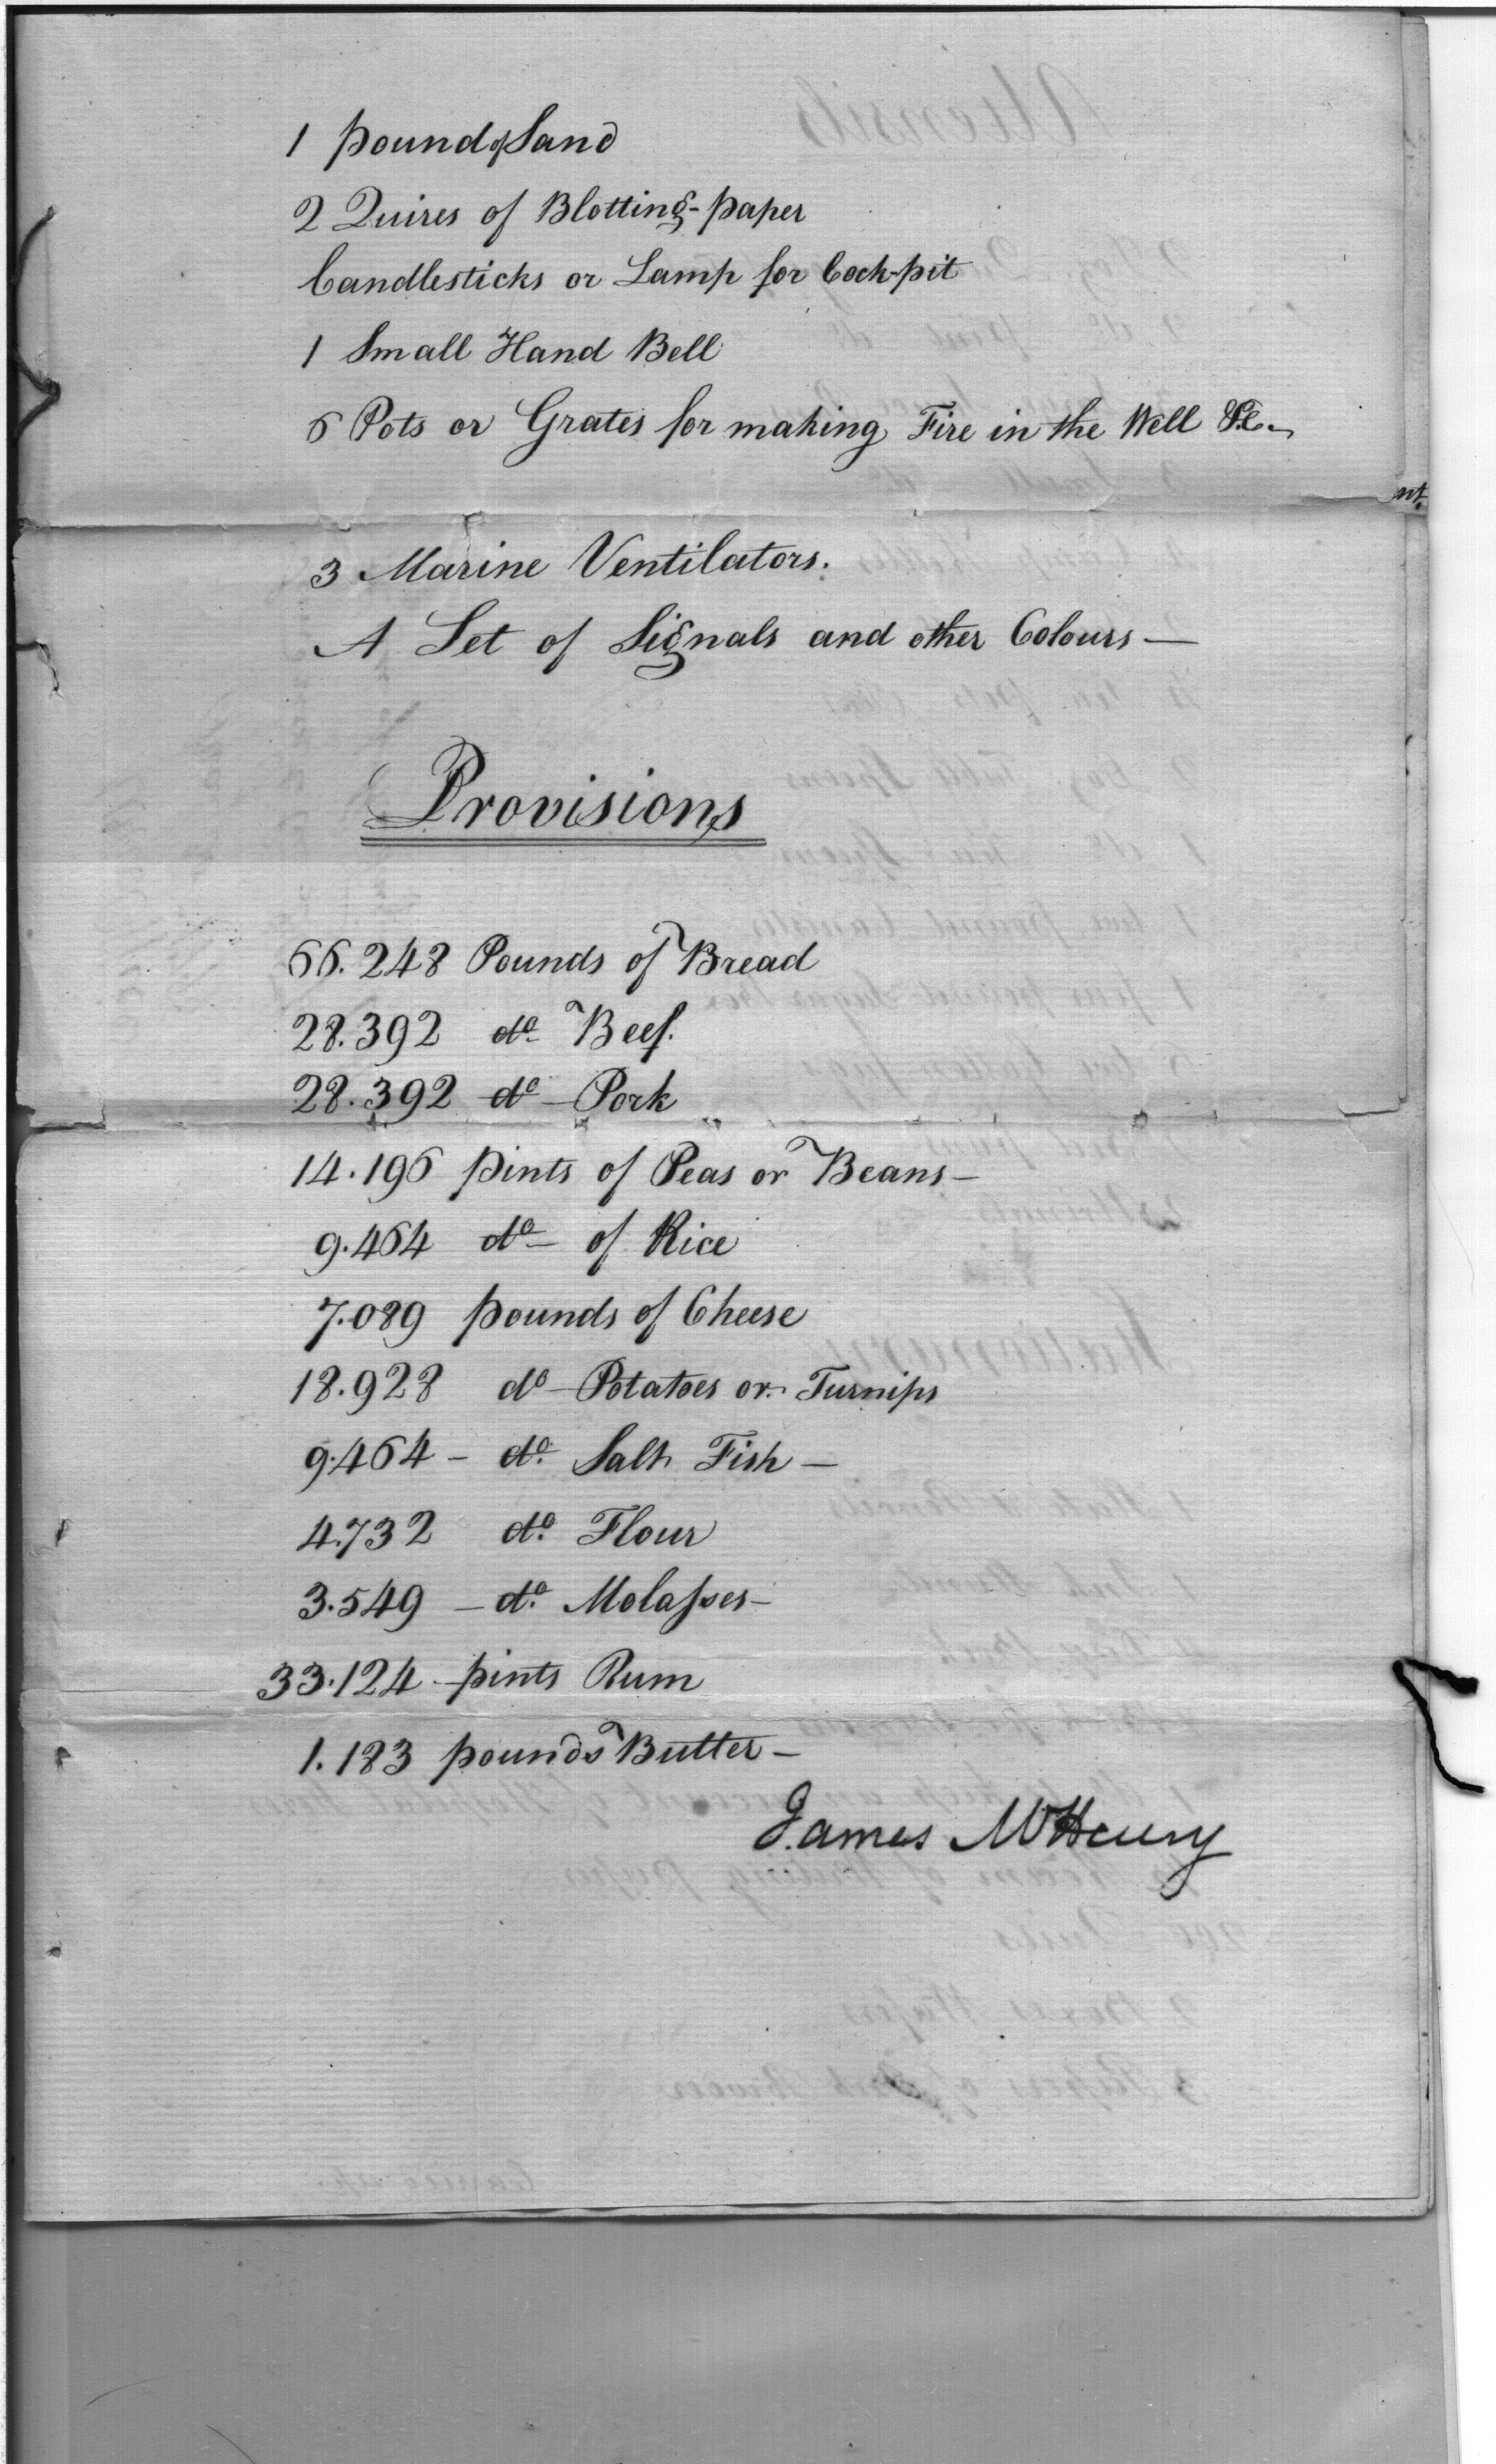 1 pound of Sand
2 Quires of Blotting-paper
Candlesticks or Lamp for Cock-pit
1 Small Hand Bell
6 Pots or Grates for making Fire in the Well &c.
nt.
3 Marine Ventilators.
A Set of Signals and other Colours—
Provisions
66.248 Pounds of Bread
28.392 do- Beef.
28.392 do- Pork
14.196 pints of Peas or Beans-
9.464 do- of Rice
7.089 pounds of Cheese
18.928 do- Potatoes or Turnips
9.464 - do. Salt Fish —
4.732 do. Flour
3.549 - do. Molaſses-
33.124 - pints Rum
1.183 pounds Butter -
James McHenry